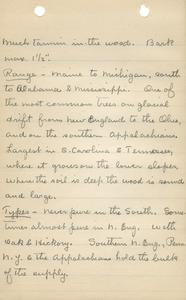 Much tannin in the wood. Bark
max. 1½".
Range - Maine to Michigan, south
to Alabama & Mississippi. One of
the most common trees on glacial
drift from New England to the Ohio,
and on the southern Appalachians.
Largest in S. Carolina & Tennessee,
where it grows on the lower slopes
where the soil is deep the wood is sound
and large.
Types - Never pure in the South. Some
times almost pure in N. Eng. with
Oak & Hickory. Southern N. Eng., Penn
N. Y. & the Appalachians hold the bulk
of the supply.